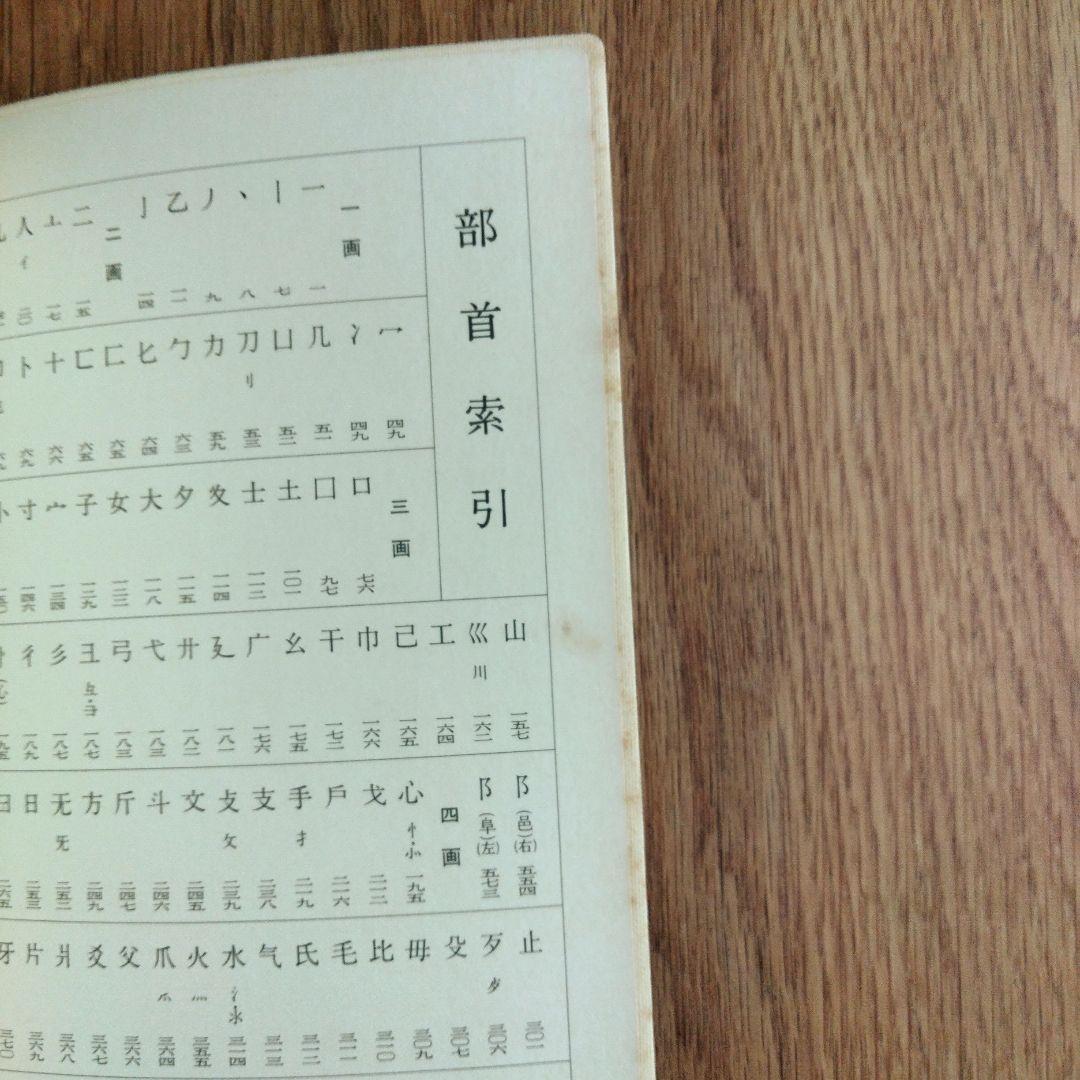 部首索引
一画
一 一
丨 七
丶 八
丿 九
乙 一一
亅 一四
二画
二 一五
亠 一七
人 亻 二〇
冖 四九
冫 四九
几 五一
凵 五二
刀 刂 五三
力 五九
勹 六三
匕 六四
匚 六五
匸 六五
十 六六
卜 六九
三画
口 七六
囗 九七
土 一〇一
士 一一二
夊 一一四
夕 一一五
大 一一八
女
子
宀 一三四
寸 一四六
山 一五七
巛 川 一六二
工 一六四
己 一六五
巾 一六六
干 一七二
幺 一七五
广 一七六
廴 一八一
廾 一八二
弋 一八三
弓 一八三
彐 彑・彐 一八七
彡 一八七
彳 一八九
阝(邑)(右) 五五四
阝(阜)(左) 五七三
四画
心 忄・㣺 一九五
戈 二一二
戶 二一六
手 扌 二一九
支 二三八
攴 攵 二三九
文 二四五
斗 二四六
斤 二四七
方 二四九
无 旡 二五二
日 二五三
曰 二六五
止 三〇二
歹 歺 三〇六
殳 三〇七
毋 三〇九
比 三一〇
毛 三一一
氏 三一二
气 三一三
水 氵・氺 三一四
火 灬 三五五
爪 爫 三六四
父 三六六
爻 三六七
爿 三六八
片 三六九
牙 三七〇